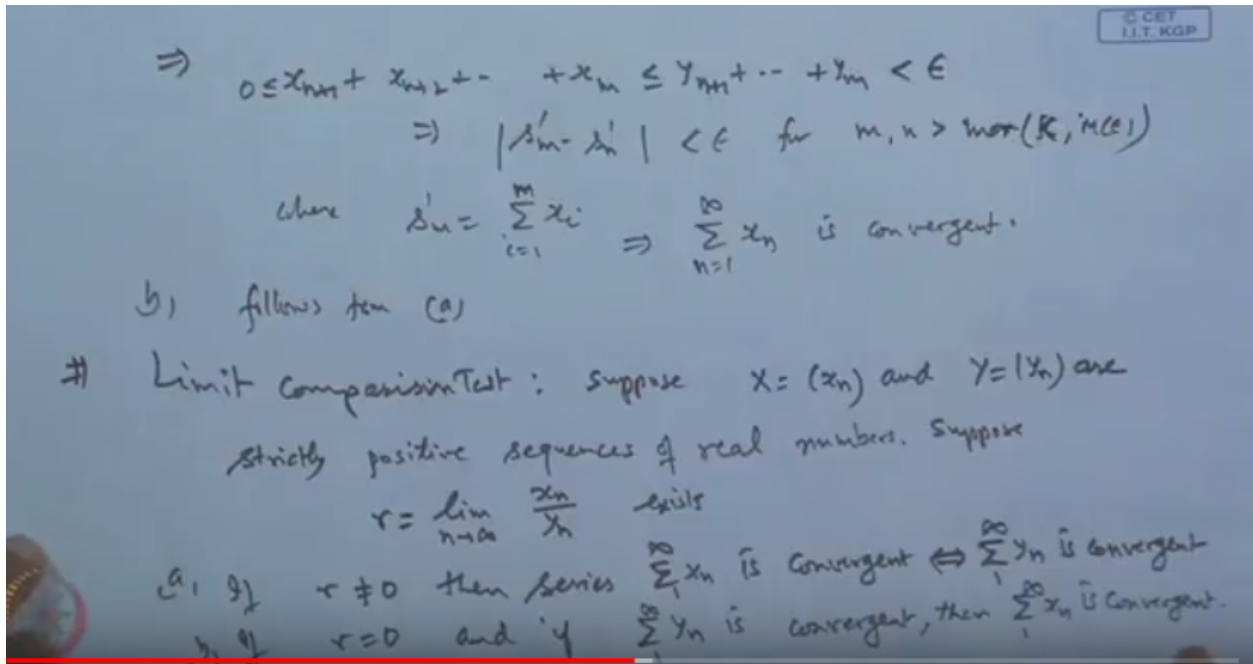 © CET
I.I.T. KGP
⇒ 0 ≤ x_{n+1} + x_{n+2} + -- + x_m ≤ y_{n+1} + -- + y_m < ε
⇒ |s'_m - s'_n| < ε for m, n > max(K, M(ε))
where s'_n = Σ_{i=1}^{m} x_i ⇒ Σ_{n=1}^{∞} x_n is convergent.
b) follows from (a)
# Limit Comparison Test : Suppose X = (x_n) and Y = (y_n) are
strictly positive sequences of real numbers. Suppose
r = lim_{n→∞} x_n / y_n exists
a) If r ≠ 0 then series Σ_{1}^{∞} x_n is convergent ⇔ Σ_{1}^{∞} y_n is convergent
b) If r = 0 and if Σ_{1}^{∞} y_n is convergent, then Σ_{1}^{∞} x_n is convergent.